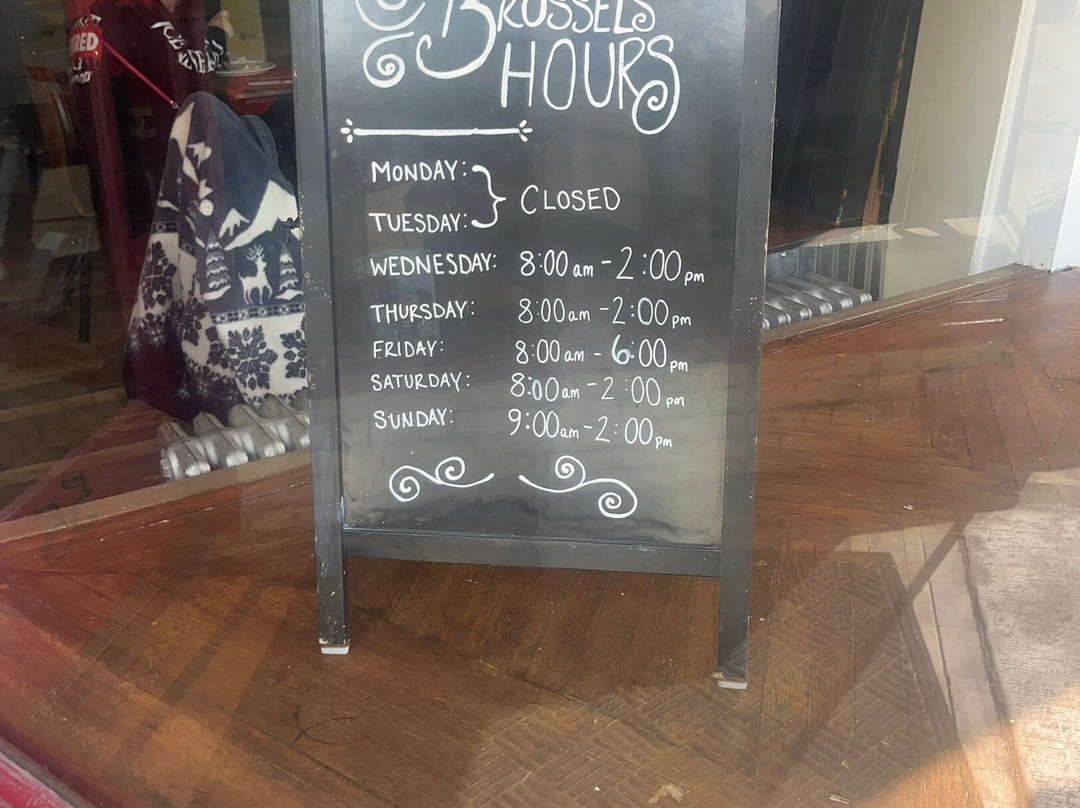 BRUSSELS
HOURS
MONDAY:
TUESDAY: } CLOSED
WEDNESDAY: 8:00am - 2:00pm
THURSDAY: 8:00am - 2:00pm
FRIDAY: 8:00am - 6:00pm
SATURDAY: 8:00am - 2:00pm
SUNDAY: 9:00am - 2:00pm